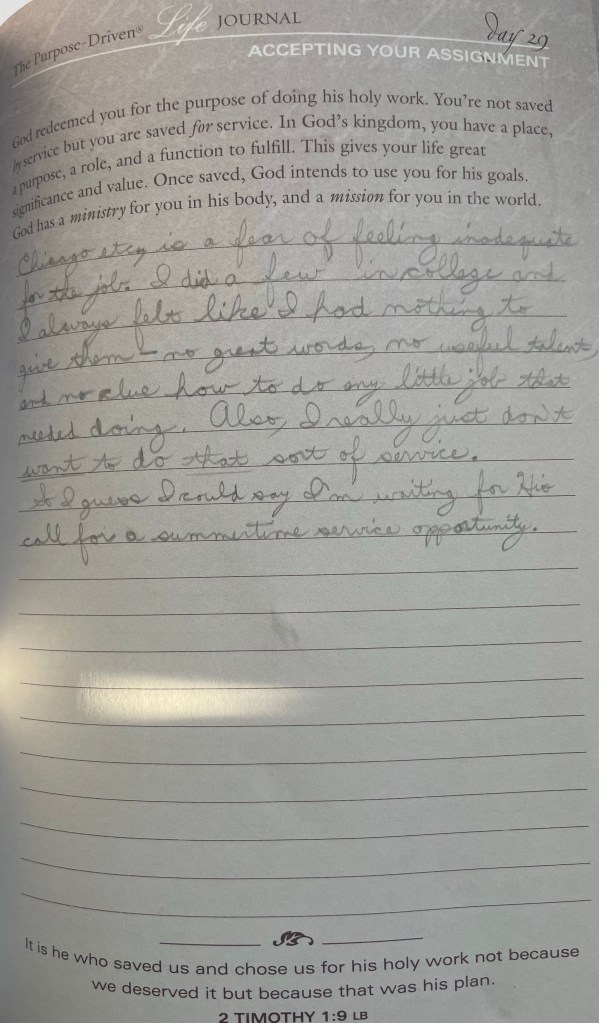 The Purpose-Driven® Life JOURNAL
Day 29
ACCEPTING YOUR ASSIGNMENT
God redeemed you for the purpose of doing his holy work. You're not saved
by service but you are saved for service. In God's kingdom, you have a place,
a purpose, a role, and a function to fulfill. This gives your life great
significance and value. Once saved, God intends to use you for his goals.
God has a ministry for you in his body, and a mission for you in the world.
Chicago etcy is a fear of feeling inadequate
for the job. I did a few in college and
I always felt like I had nothing to
give them - no great words, no useful talent,
and no clue how to do any little job that
needed doing. Also, I really just don't
want to do that sort of service.
So I guess I could say I'm waiting for His
call for a summertime service opportunity.
It is he who saved us and chose us for his holy work not because
we deserved it but because that was his plan.
2 TIMOTHY 1:9 LB